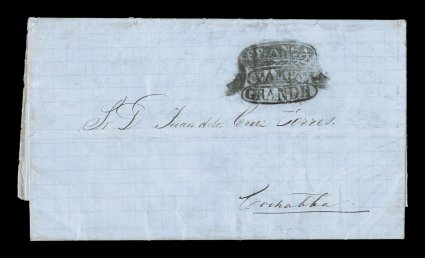 FRANCA
VALLE
GRANDE
Sr. D. Juan de la Cruz Torres.
Cochabba.